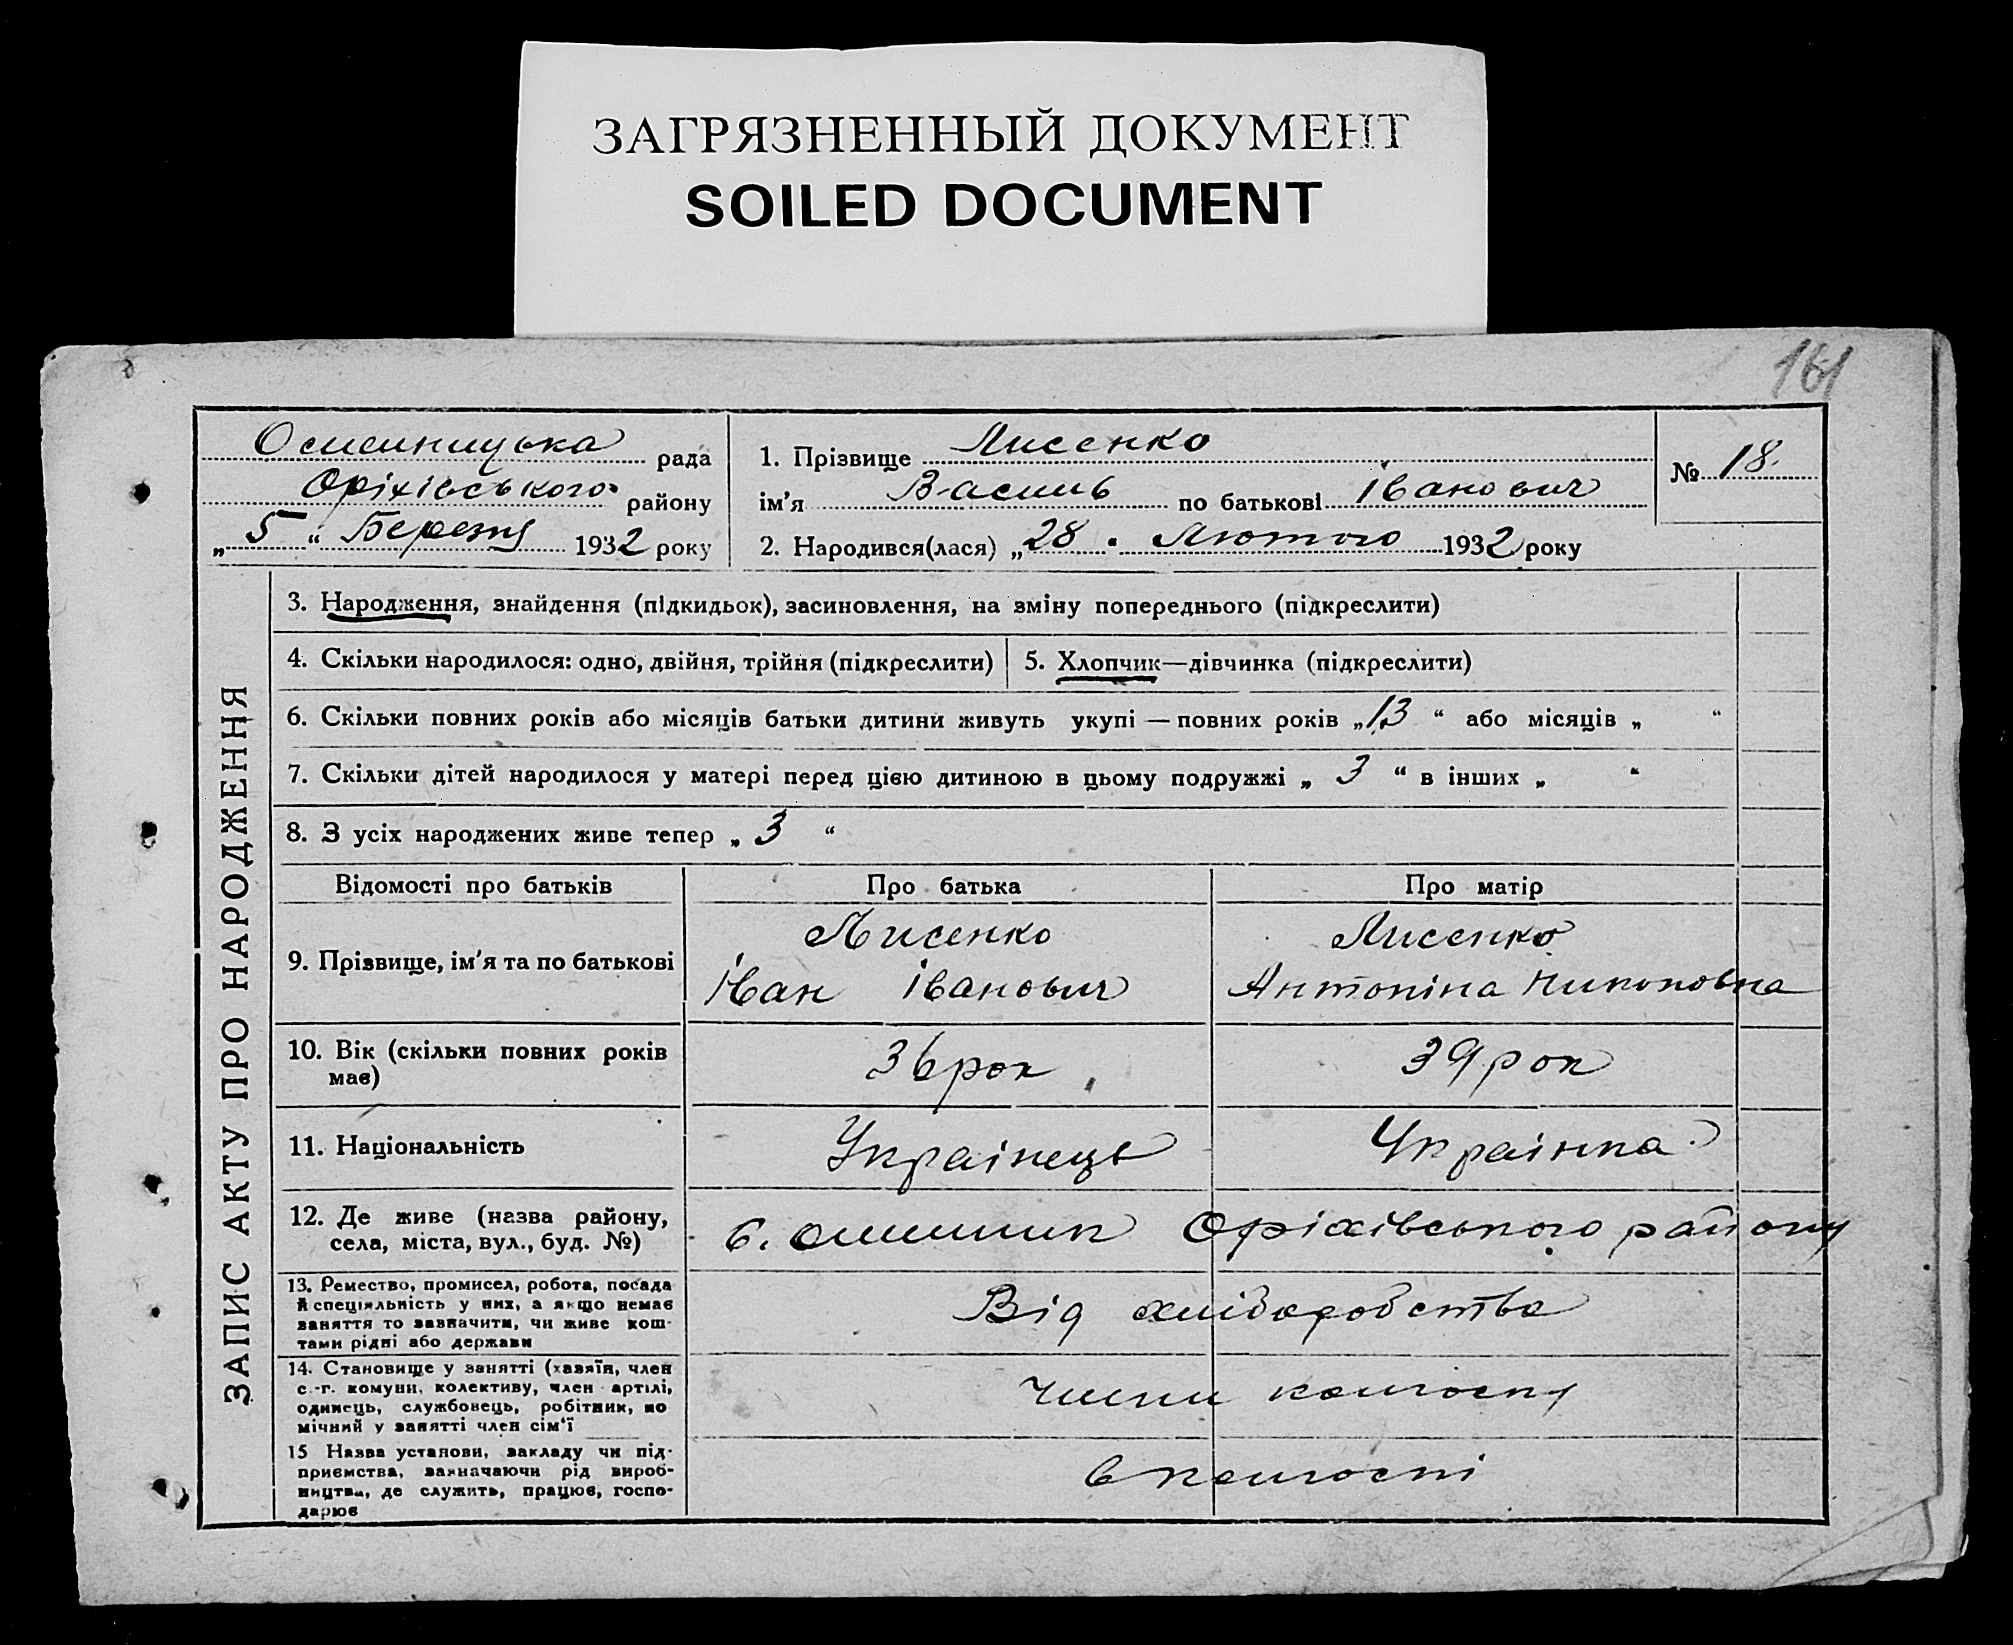 ЗАГРЯЗНЕННЫЙ ДОКУМЕНТ
SOILED DOCUMENT
161
рада
Оріхівського району
„ 5 “ Березня 1932 року
1. Прізвище Лисенко
ім'я Василь по батькові Іванович
2. Народився(лася) „ 28 . Лютого 1932 року
№ 18.
ЗАПИС АКТУ ПРО НАРОДЖЕННЯ
3. Народження, знайдення (підкидьок), засиновлення, на зміну попереднього (підкреслити)
4. Скільки народилося: одно, двійня, трійня (підкреслити)
5. Хлопчик—дівчинка (підкреслити)
6. Скільки повних років або місяців батьки дитини живуть укупі — повних років „ 13 “ або місяців „ “
7. Скільки дітей народилося у матері перед цією дитиною в цьому подружжі „ 3 “ в інших „ “
8. З усіх народжених живе тепер „ 3 “
Відомості про батьків
Про батька
Про матір
9. Прізвище, ім'я та по батькові
Лисенко
Іван Іванович
Лисенко
Антоніна Никоновна
10. Вік (скільки повних років
має)
36 рок
39 рок
11. Національність
Українець
Українка
12. Де живе (назва району,
села, міста, вул., буд. №)
Оріхівського району
13. Ремество, промисел, робота, посада
й спеціяльність у них, а якщо немає
заняття то зазначити, чи живе кош-
тами рідні або держави
Від хліборобства
14. Становище у занятті (хазяїн, член
с.-г. комуни, колективу, член артілі,
одинець, службовець, робітник, по
мічний у занятті член сім'ї
Члени колгоспу
15 Назва установи, закладу чи під-
приємства, зазначаючи рід вироб-
ництва, де служить, працює, госпо-
дарює
в колгоспі